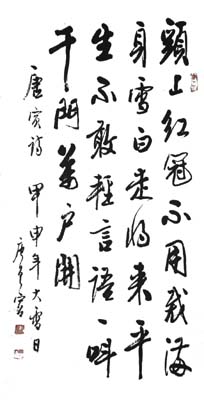 頭上紅冠不用裁滿
身雪白走將來平
生不敢輕言語一叫
千門萬戶開
唐寅詩 甲申年大雪日